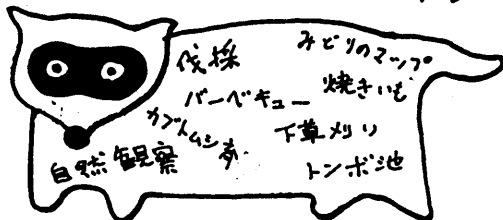 伐採
みどりのマップ
バーベキュー
焼きいも
カブトムシ
下草メリリ
自然観察
トンボ池